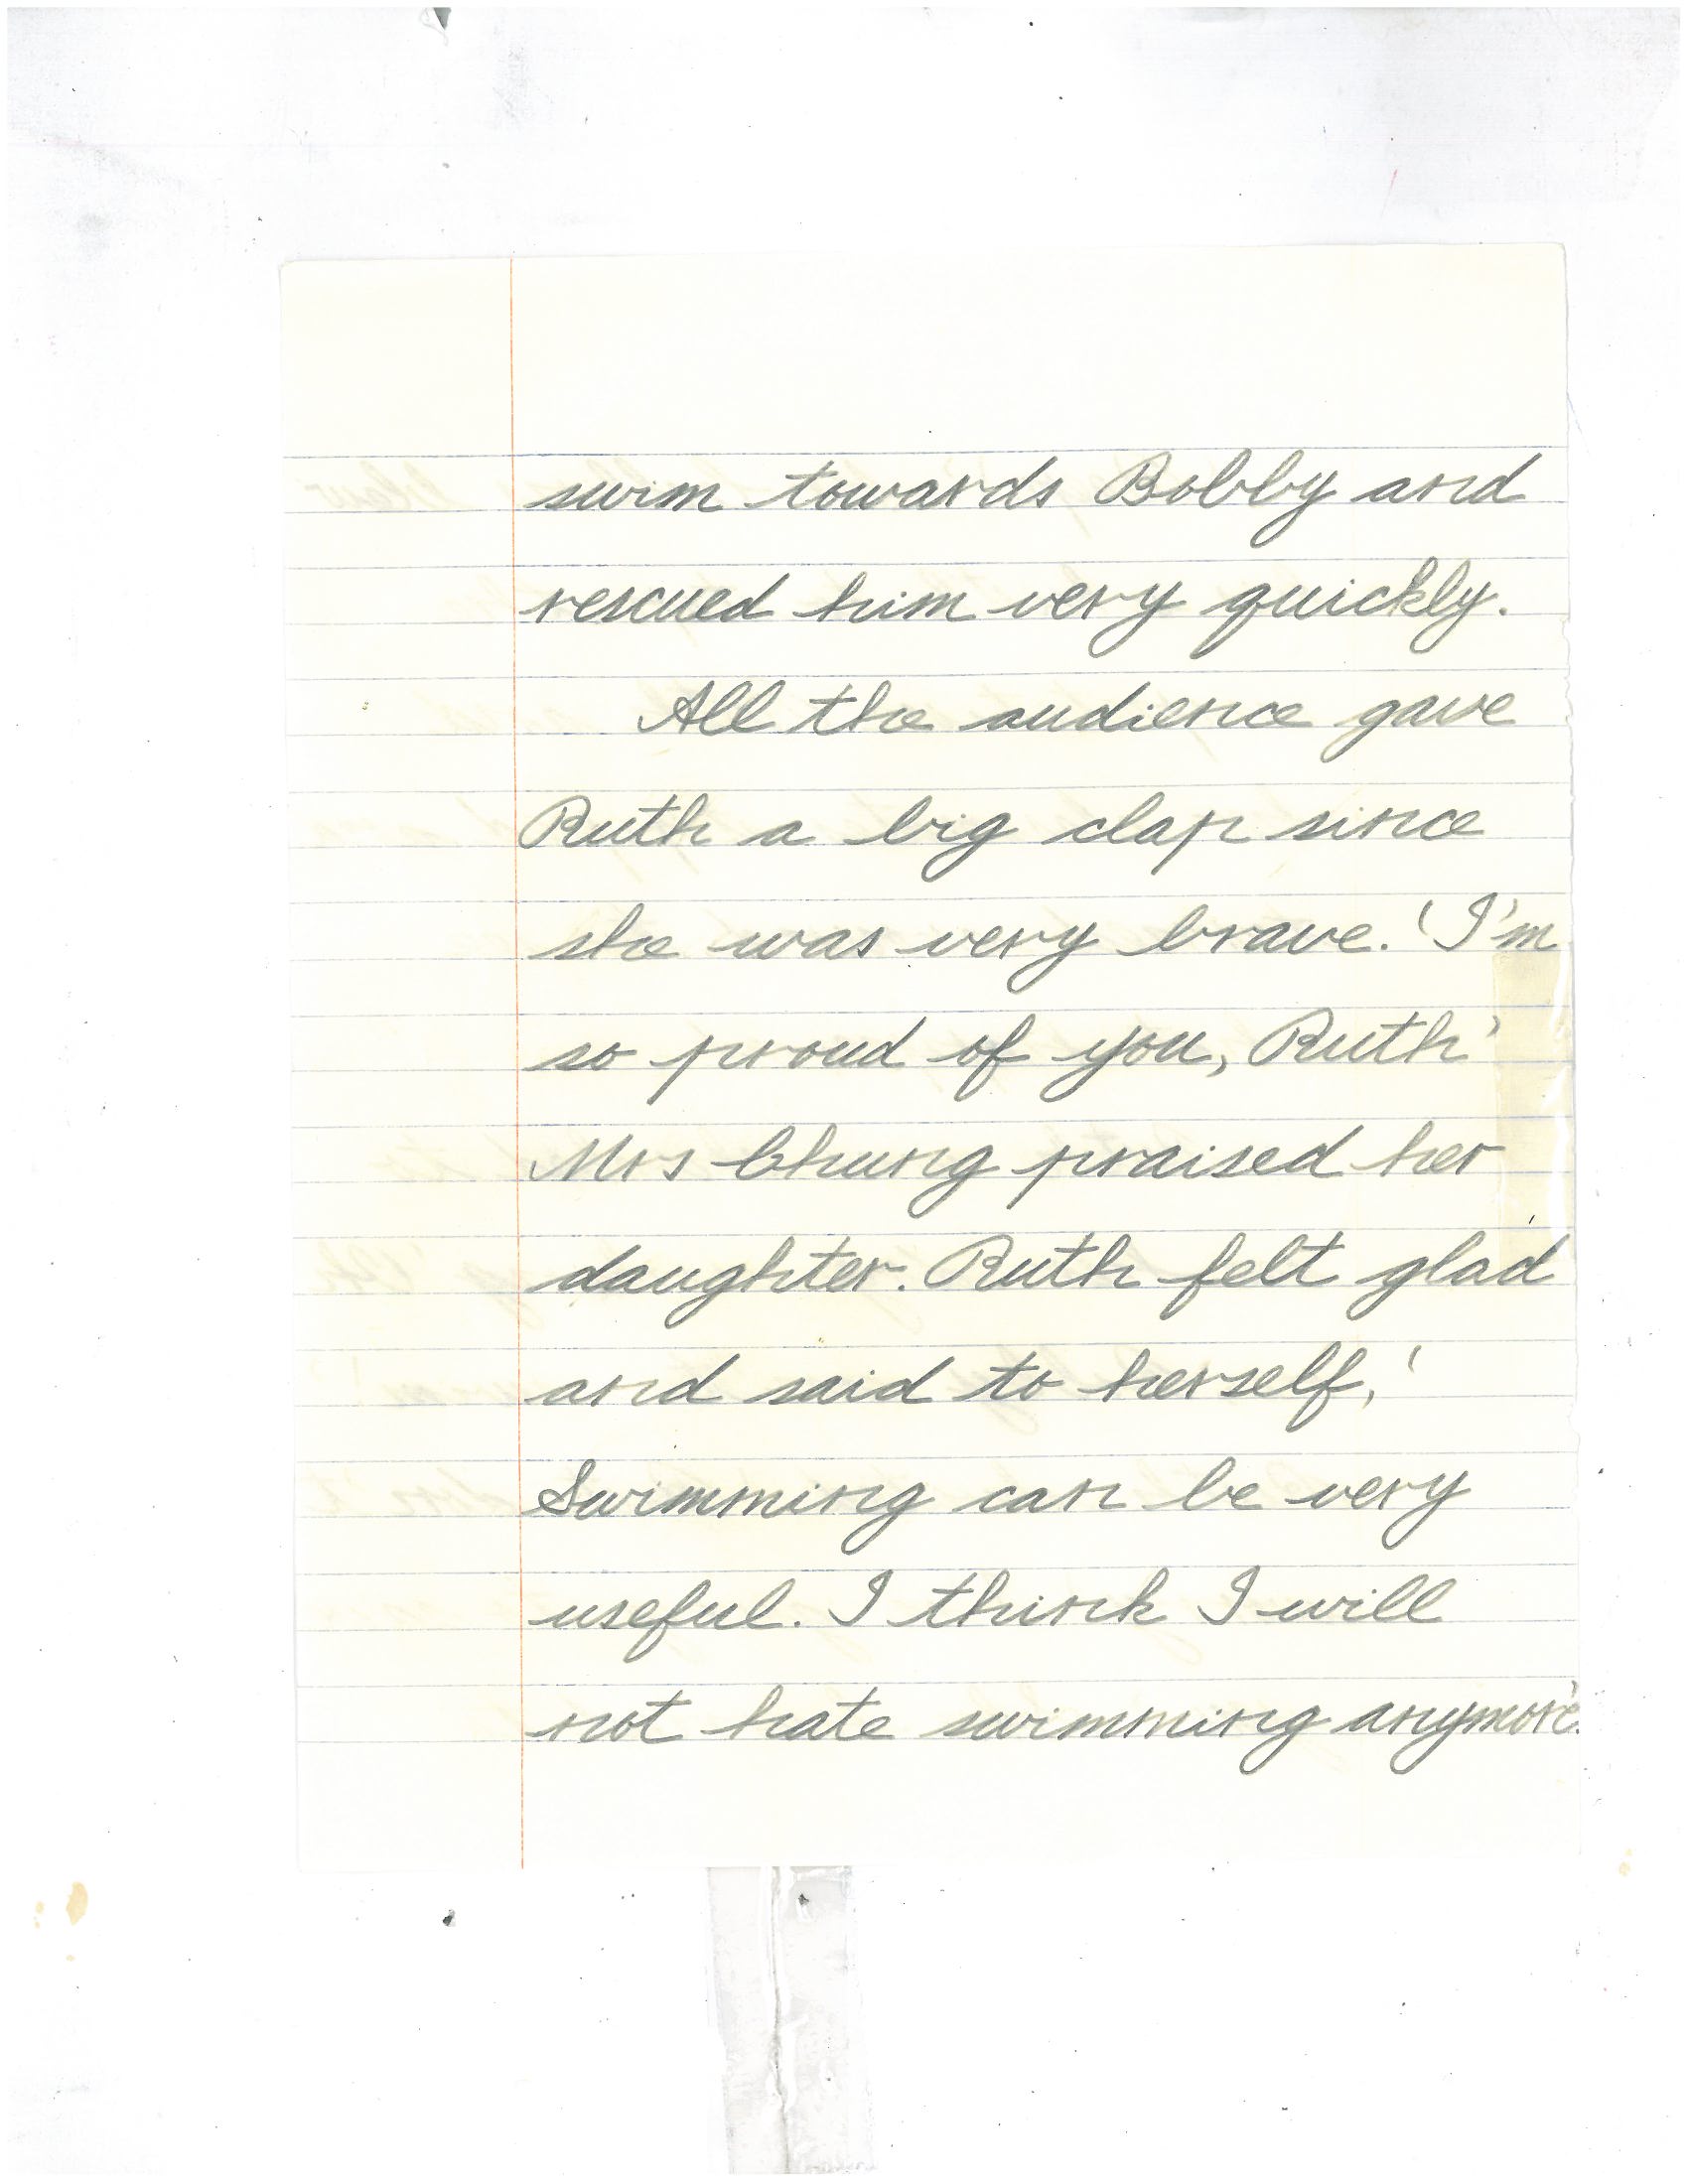 swim towards Bobby and
rescued him very quickly.
All the audience gave
Ruth a big clap since
she was very brave. 'I'm
so proud of you, Ruth'
Mrs Chung praised her
daughter. Ruth felt glad
and said to herself, '
Swimming can be very
useful. I think I will
not hate swimming anymore.'